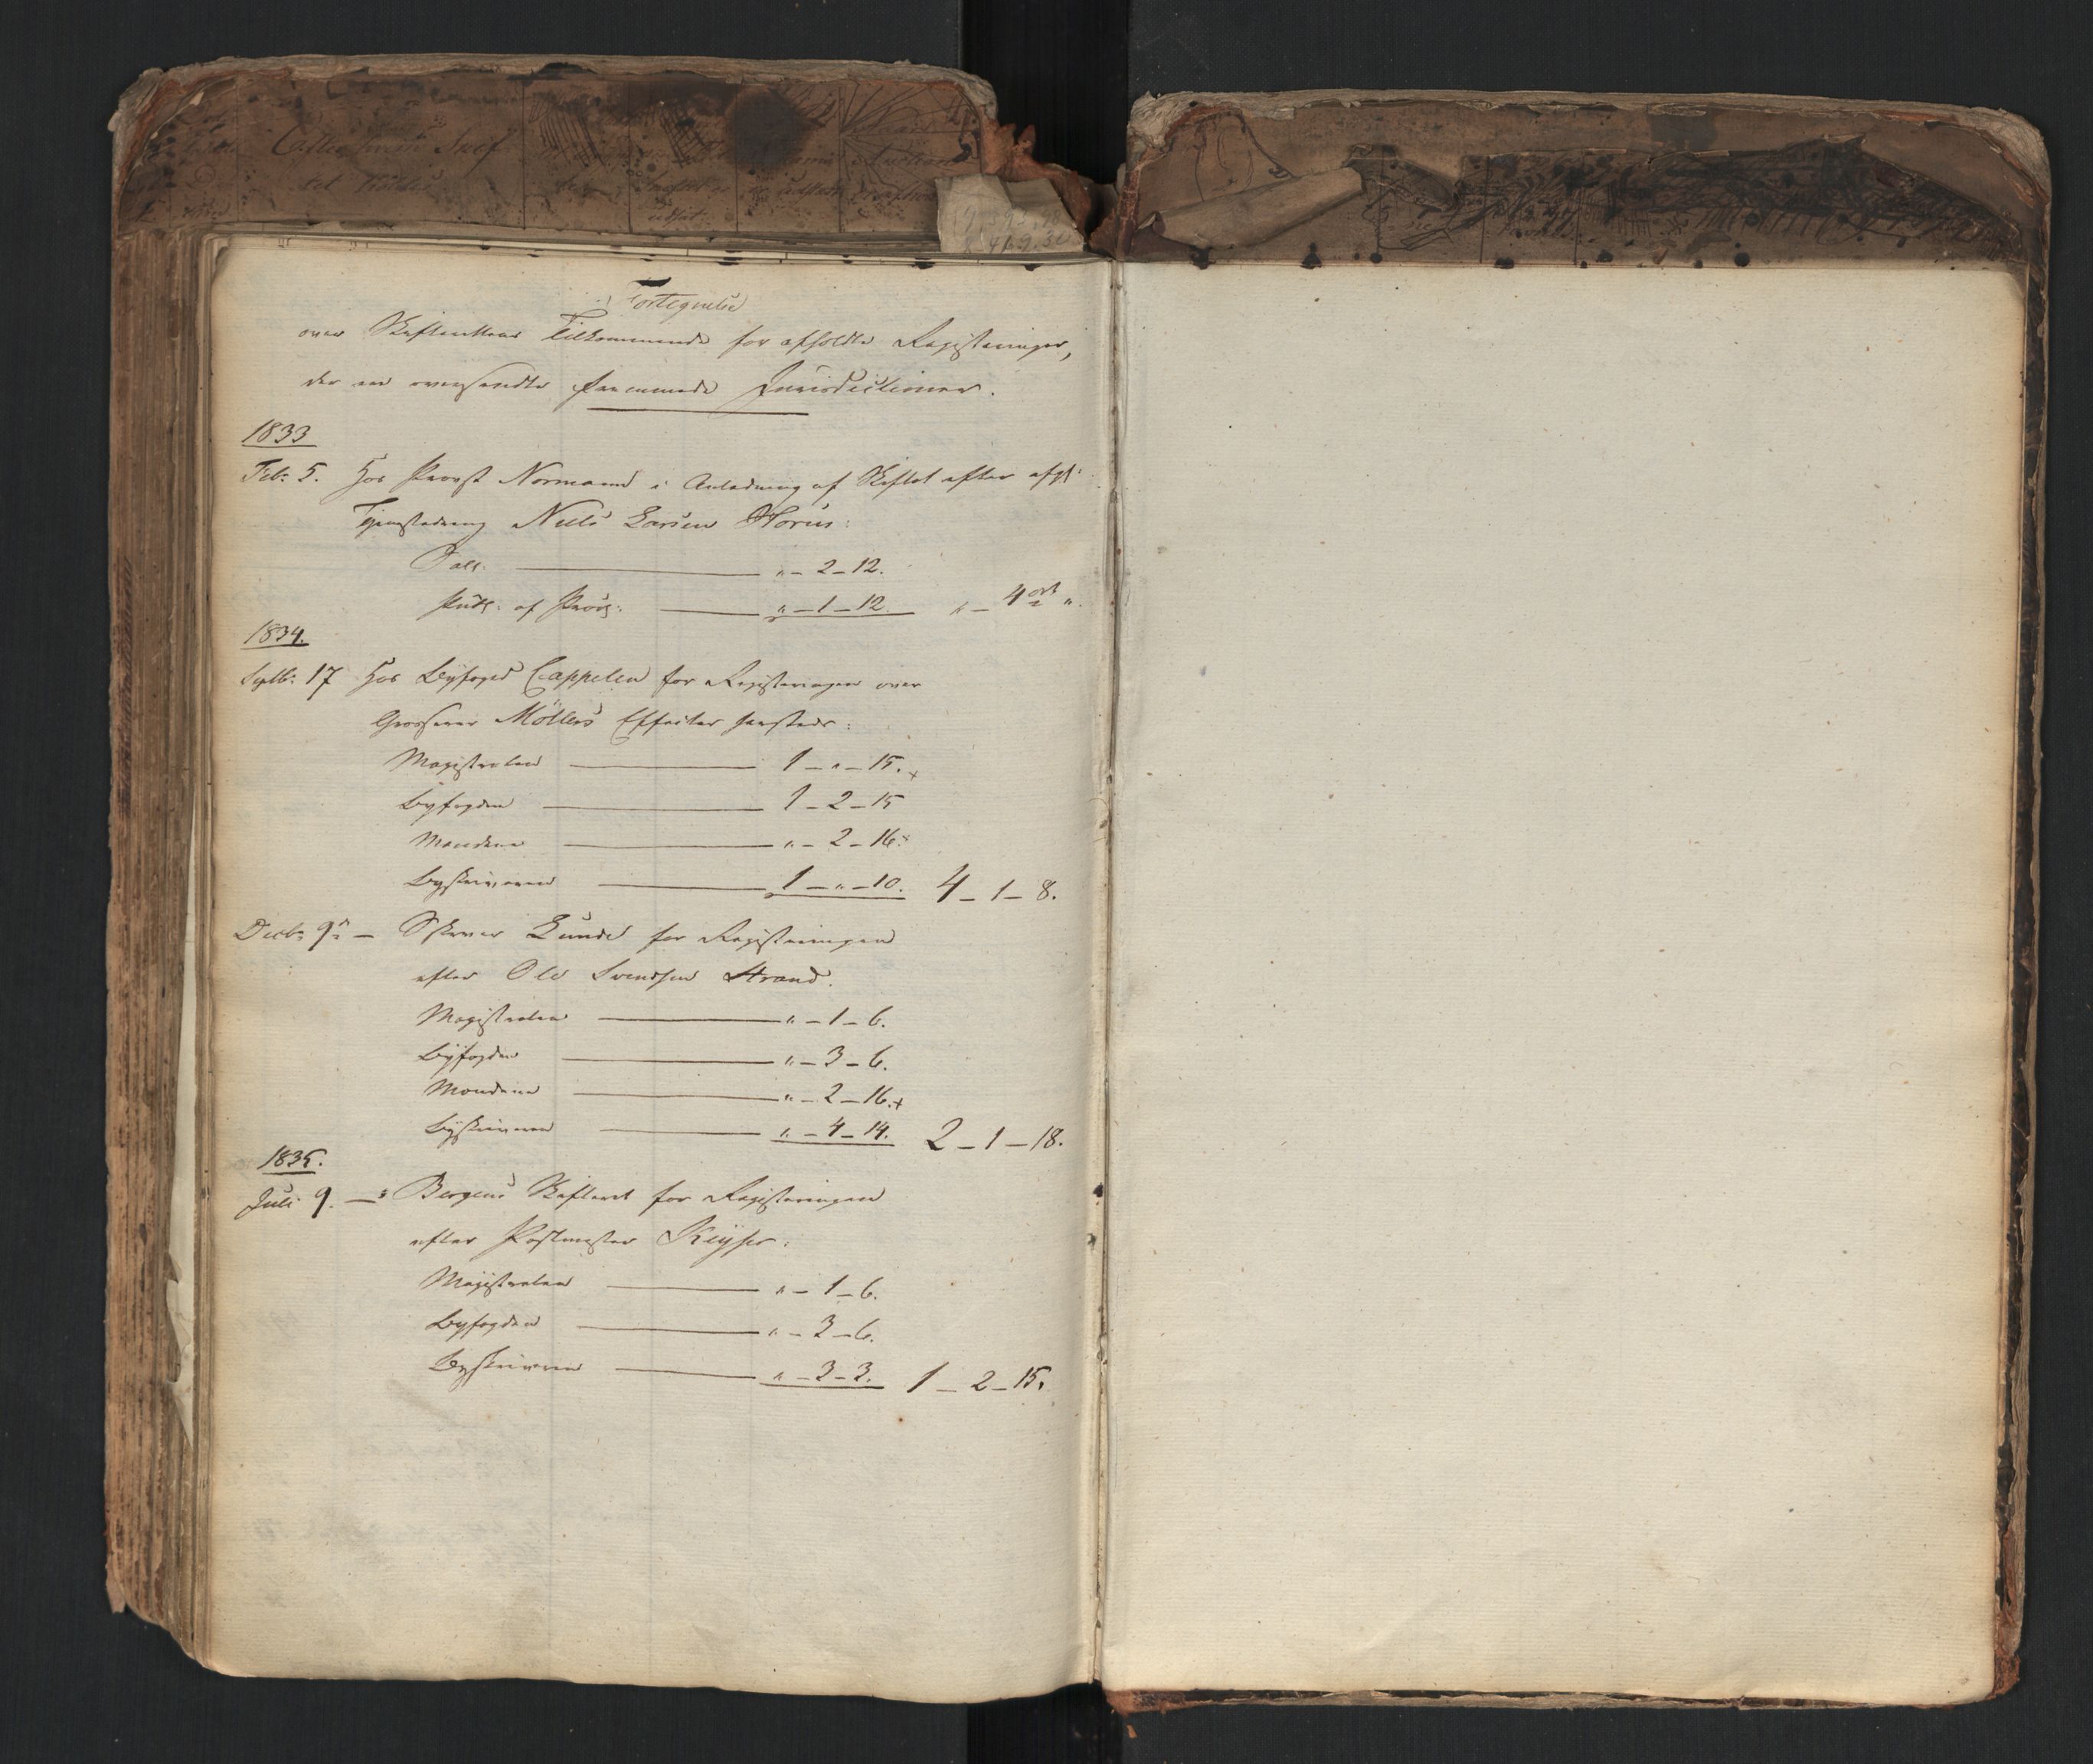 Fortegnelse
over Skifterettens Tilkommende for afholdte Registeringer,
der ere oversendte fremmede Jurisdictioner.
1833
Feb: 5. Hos Provst Normann i Anledning af Skiftet efter afg:
Niels Larsen
„ – 2 – 12.
„ – 1 – 12. „ – 4 ort „.
1834.
Septb: 17 Hos Byfoged Cappelen for Registeringen over
Grosserer Möllers Effecter hersteds:
Magistraten 1 – „ – 15.
Byfogden 1 – 2 – 15
Mændene „ – 2 – 16.
Byskriveren 1 – „ – 10. 4 – 1 – 8.
Decb: 9 – Lunde for Registeringen
efter Ole Svendsen Strand.
Magistraten „ – 1 – 6.
Byfogden „ – 3 – 6.
Mændene „ – 2 – 16.
Byskriveren „ – 4 – 14. 2 – 1 – 18.
1835.
Juli 9. – Bergens Skifteret for Registeringen
efter Postmester Keyser:
Magistraten „ – 1 – 6.
Byfogden „ – 3 – 6.
Byskriveren „ – 3 – 3. 1 – 2 – 15.